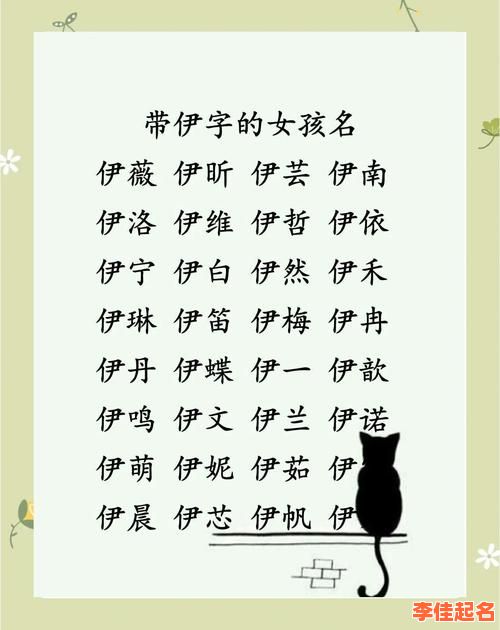 带伊字的女孩名
伊薇 伊昕 伊芸 伊南
伊洛 伊维 伊哲 伊依
伊宁 伊白 伊然 伊禾
伊琳 伊笛 伊梅 伊冉
伊丹 伊蝶 伊一 伊歆
伊鸣 伊文 伊兰 伊诺
伊萌 伊妮 伊茹 伊
伊晨 伊芯 伊帆 伊
李佳起名